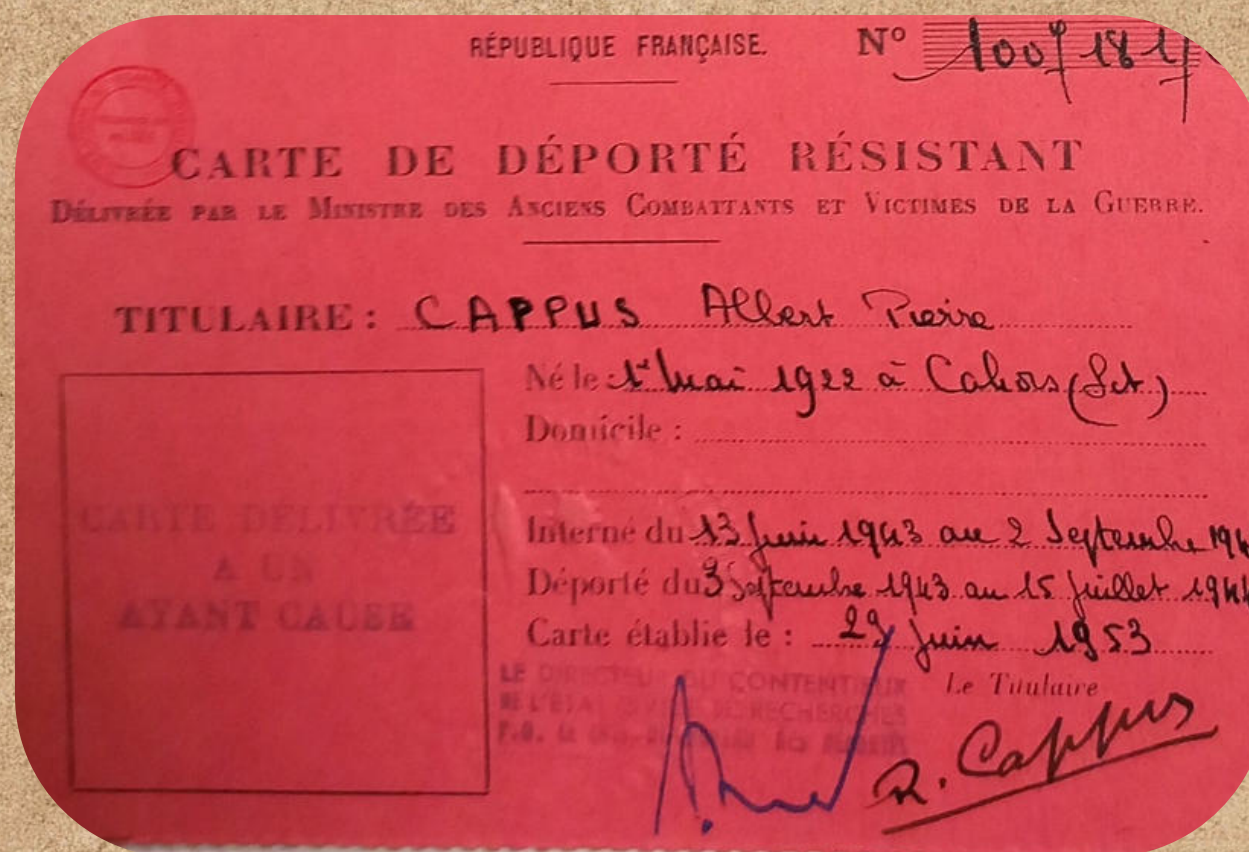 RÉPUBLIQUE FRANÇAISE.
N°
CARTE DE DÉPORTÉ RÉSISTANT
DÉLIVRÉE PAR LE MINISTRE DES ANCIENS COMBATTANTS ET VICTIMES DE LA GUERRE.
TITULAIRE : CAPPUS Albert Pierre
Né le : 1er Mai 1922 à Cahors (Lot)
Domicile :
CARTE DÉLIVRÉE
A UN
AYANT CAUSE
Interné du 13 Juin 1943 au 2 Septembre
Déporté du 3 Septembre 1943 au 15 Juillet 1944
Carte établie le : 29 Juin 1953
LE DIRECTEUR DU CONTENTIEUX
DE L'ÉTAT CIVIL ET RECHERCHES
Le Titulaire
R. Cappus